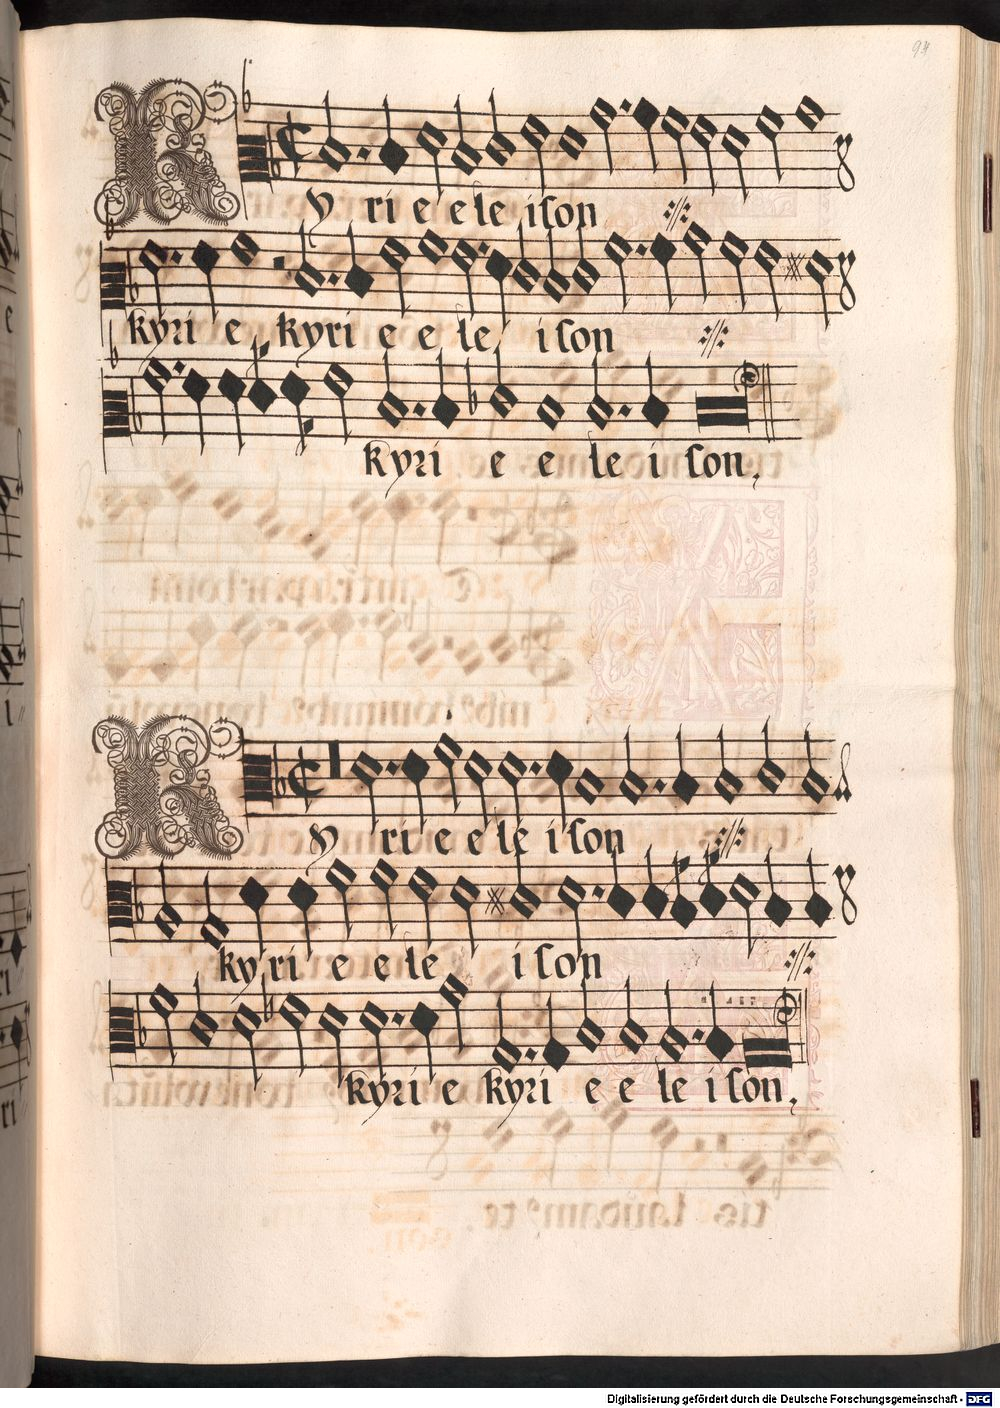 94
Kyri e e le ison
kyri e kyri e e le ison
kyri e e le i son,
Kyri e e le ison
kyri e e le ison
kyri e kyri e e le i son,
Digitalisierung gefördert durch die Deutsche Forschungsgemeinschaft - DFG